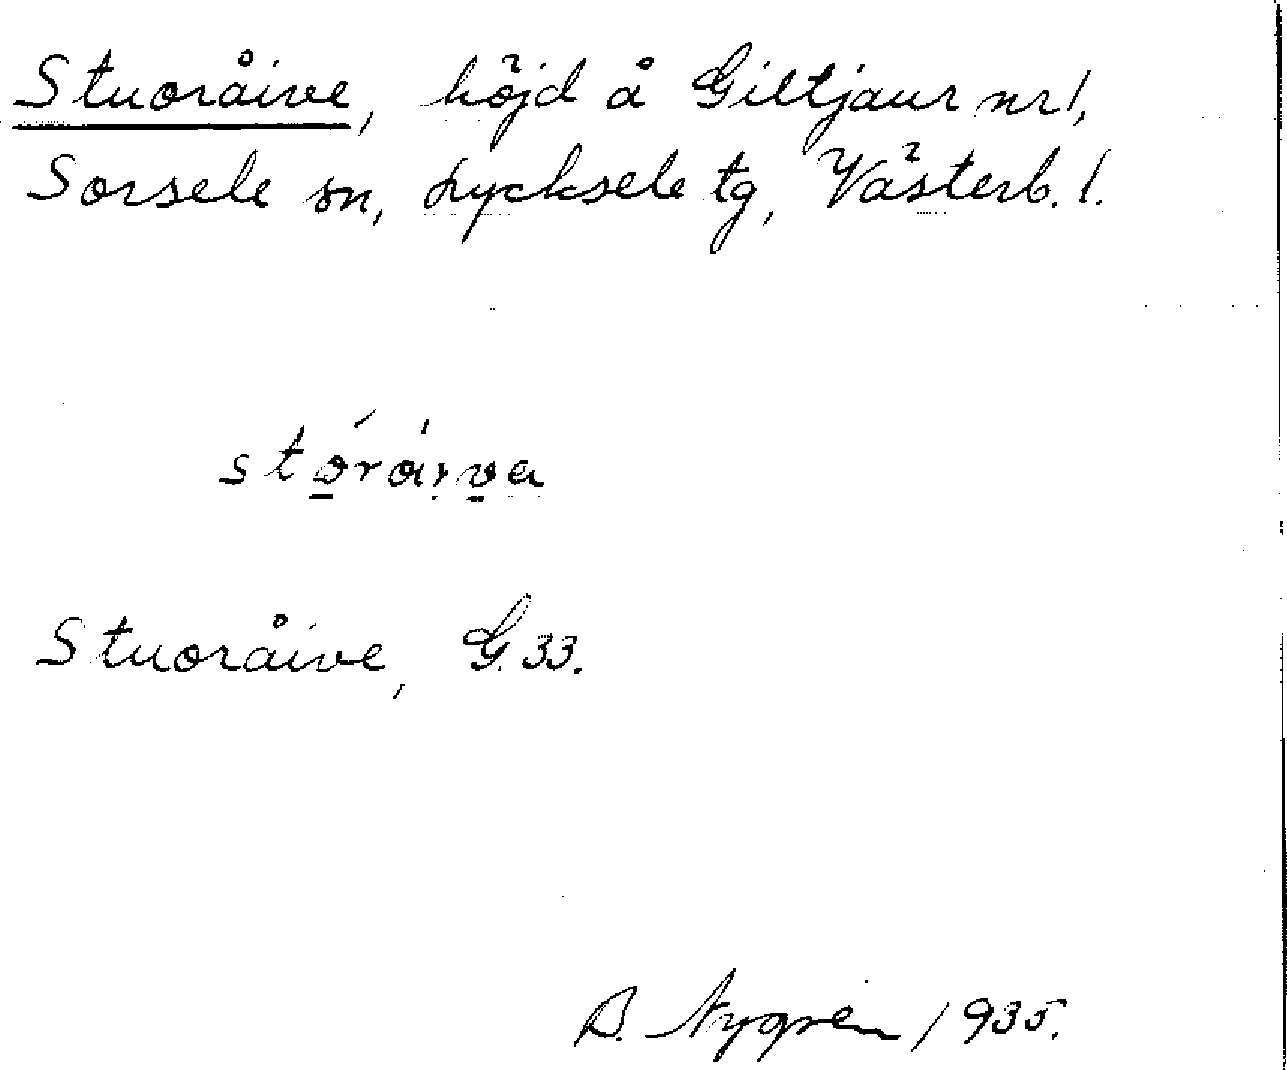 Stuoråive, höjd å Giltjaur nr 1,
Sorsele sn, Lycksele tg, Västerb. l.
Stuoråive, G. 33.
B. Nygren 1935.